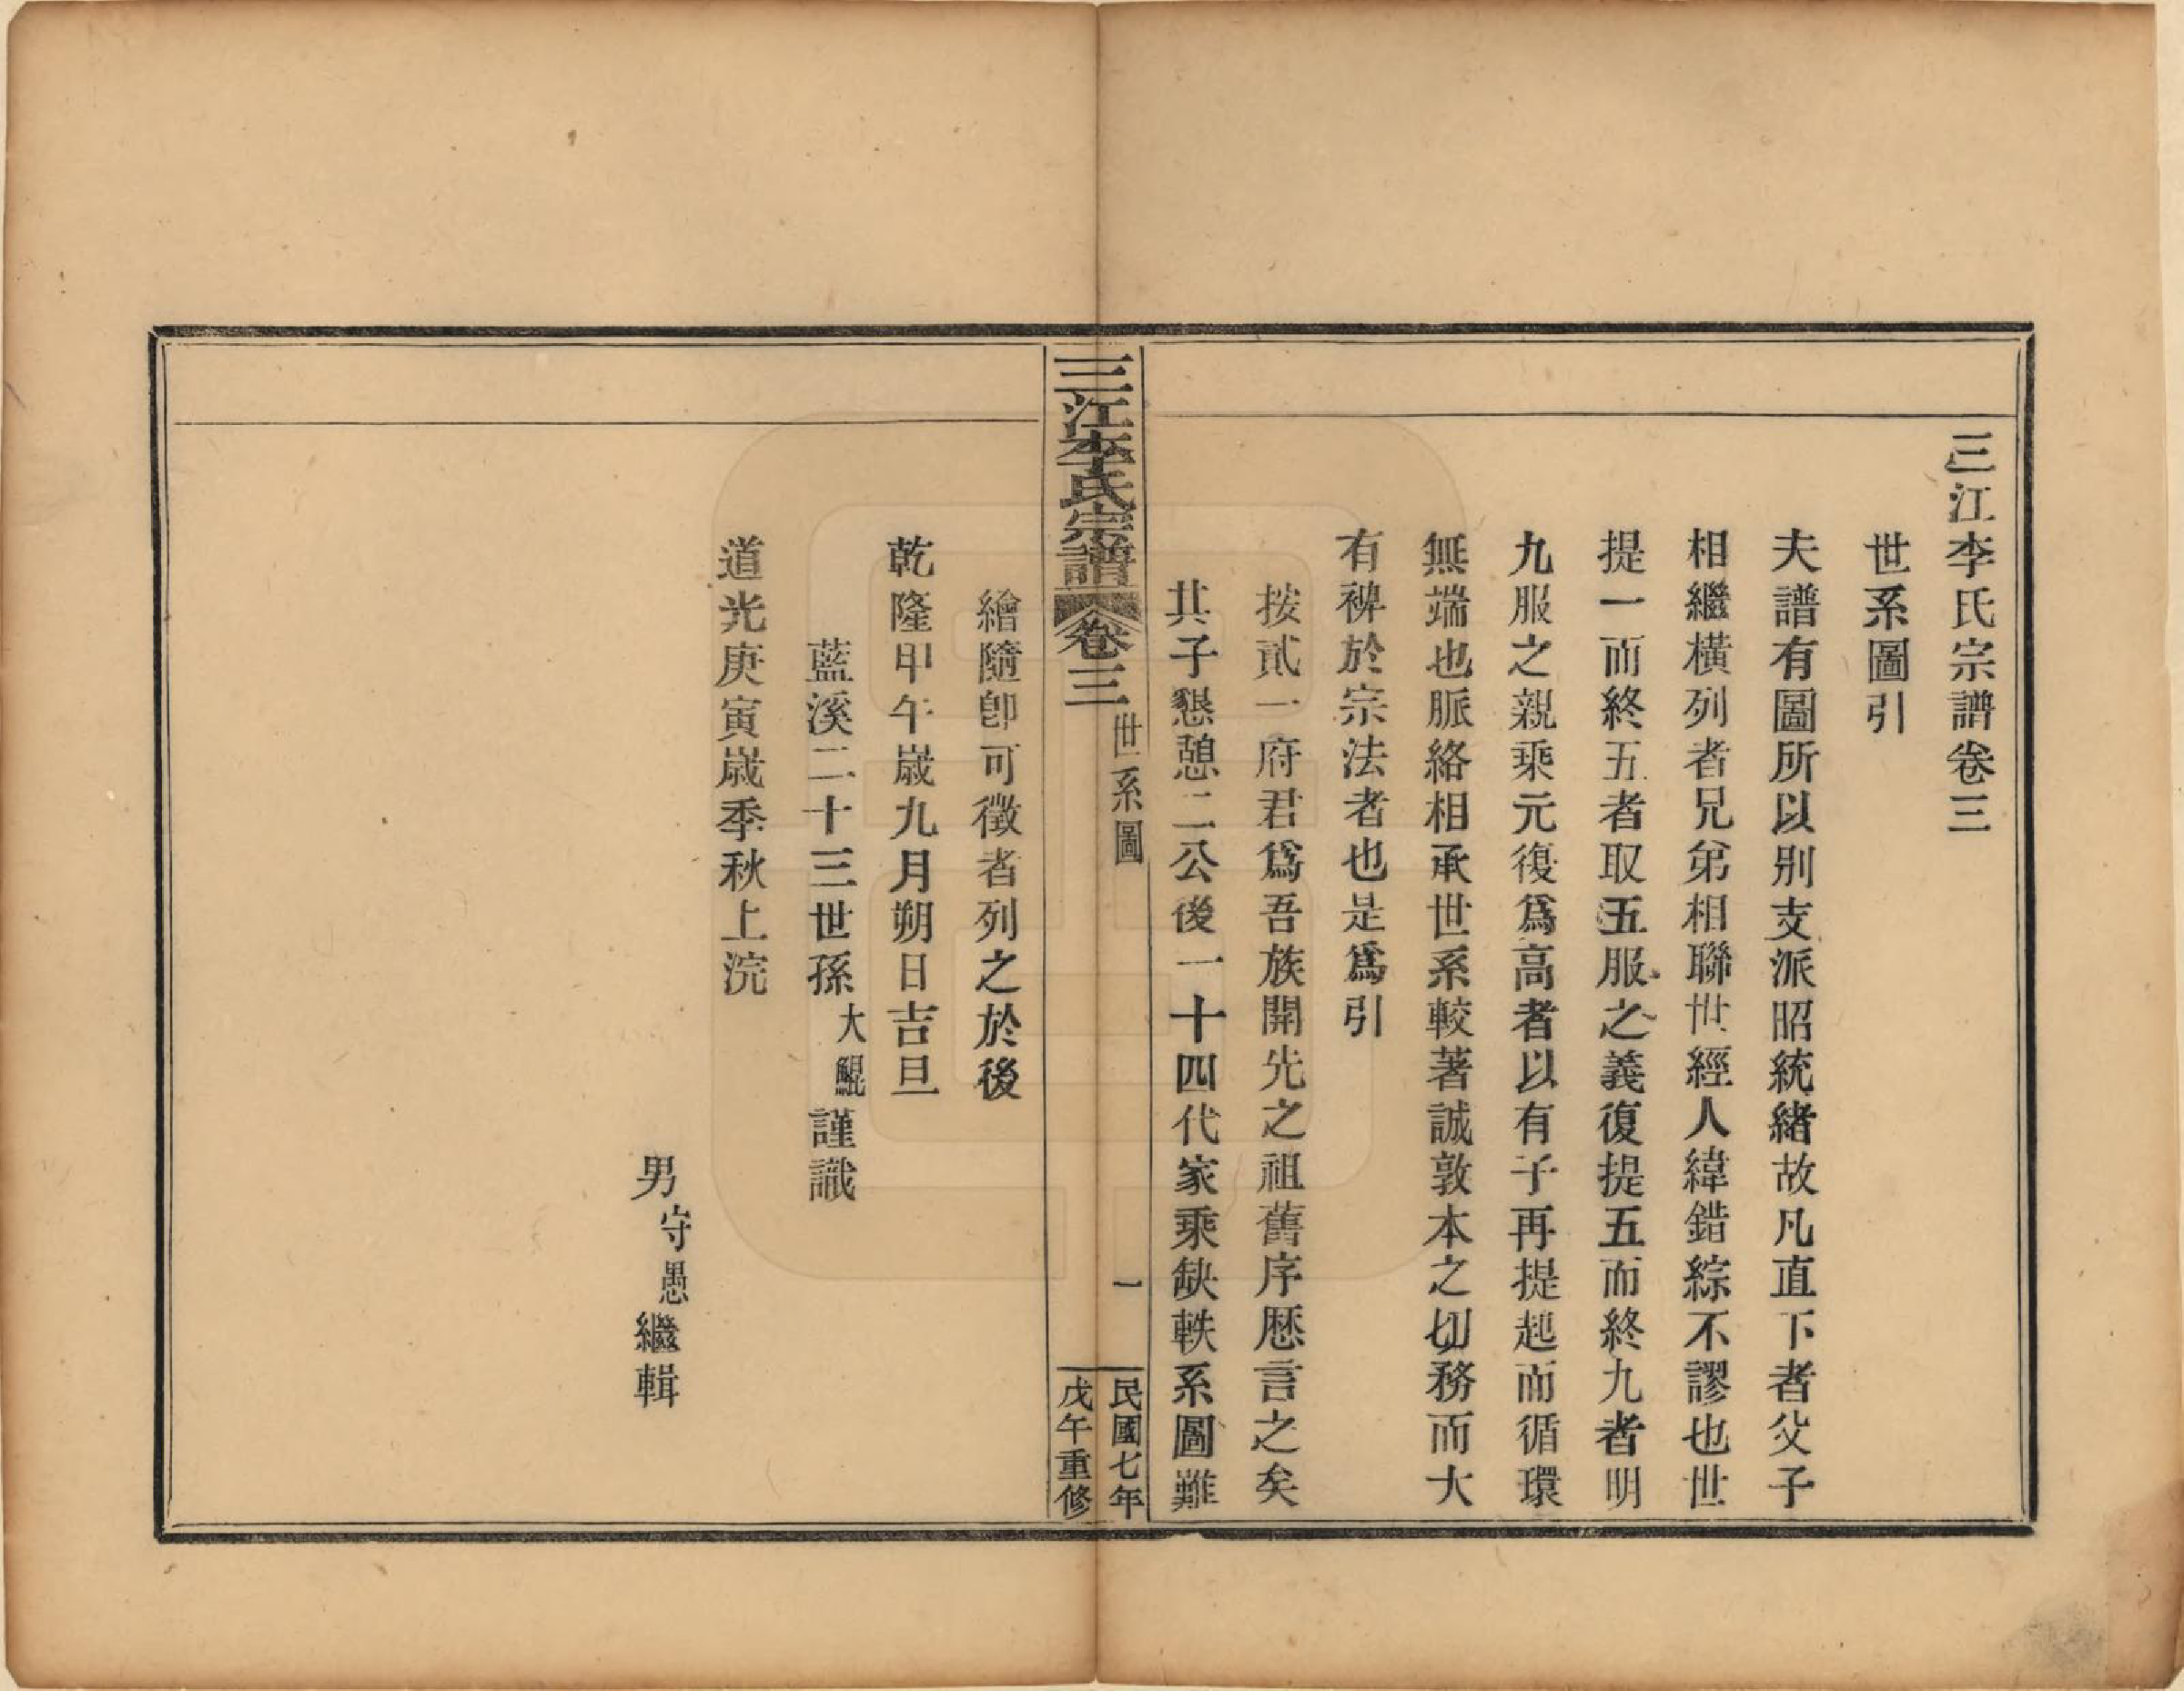 三江李氏宗譜卷三
世系圖引
夫譜有圖所以別支派昭統緒故凡直下者父子
相繼橫列者兄弟相聯世經人緯錯綜不謬也世
提一而終五者取五服之義復提五而終九者明
九服之親乘元復爲高者以有子再提起而循環
無端也脈絡相承世系較著誠敦本之切務而大
有裨於宗法者也是爲引
按貳一府君爲吾族開先之祖舊序歷言之矣
其子懇憩二公後一十四代家乘缺軼系圖難
三江李氏宗譜 卷三 世系圖 一 民國七年
戊午重修
繪隨卽可徵者列之於後
乾隆甲午歲九月朔日吉旦
藍溪二十三世孫大鯤謹識
道光庚寅歲季秋上浣
男守愚繼輯